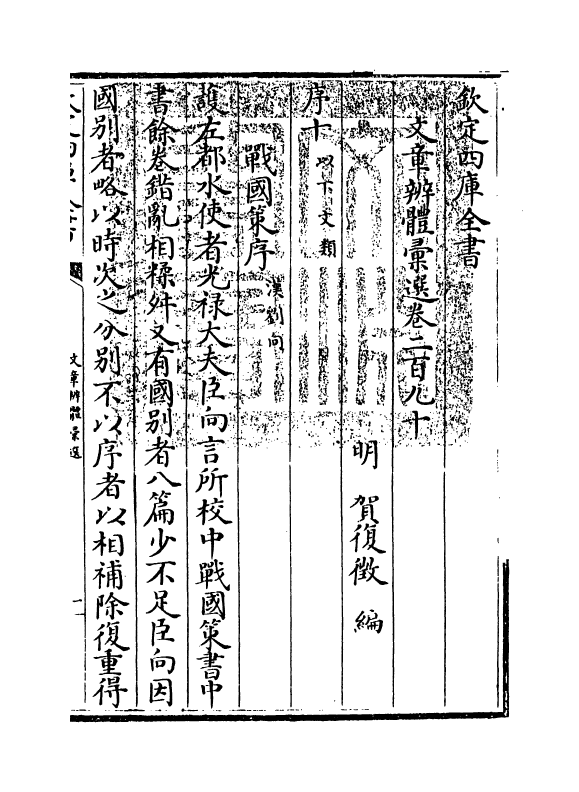 欽定四庫全書
文章辨體彙選卷二百九十
明 賀復徵 編
序十以下文類
戰國策序漢劉向
護左都水使者光禄大夫臣向言所校中戰國策書中
書餘卷錯亂相糅莒又有國別者八篇少不足臣向因
國別者略以時次之分別不以序者以相補除復重得
文章辨體彙選